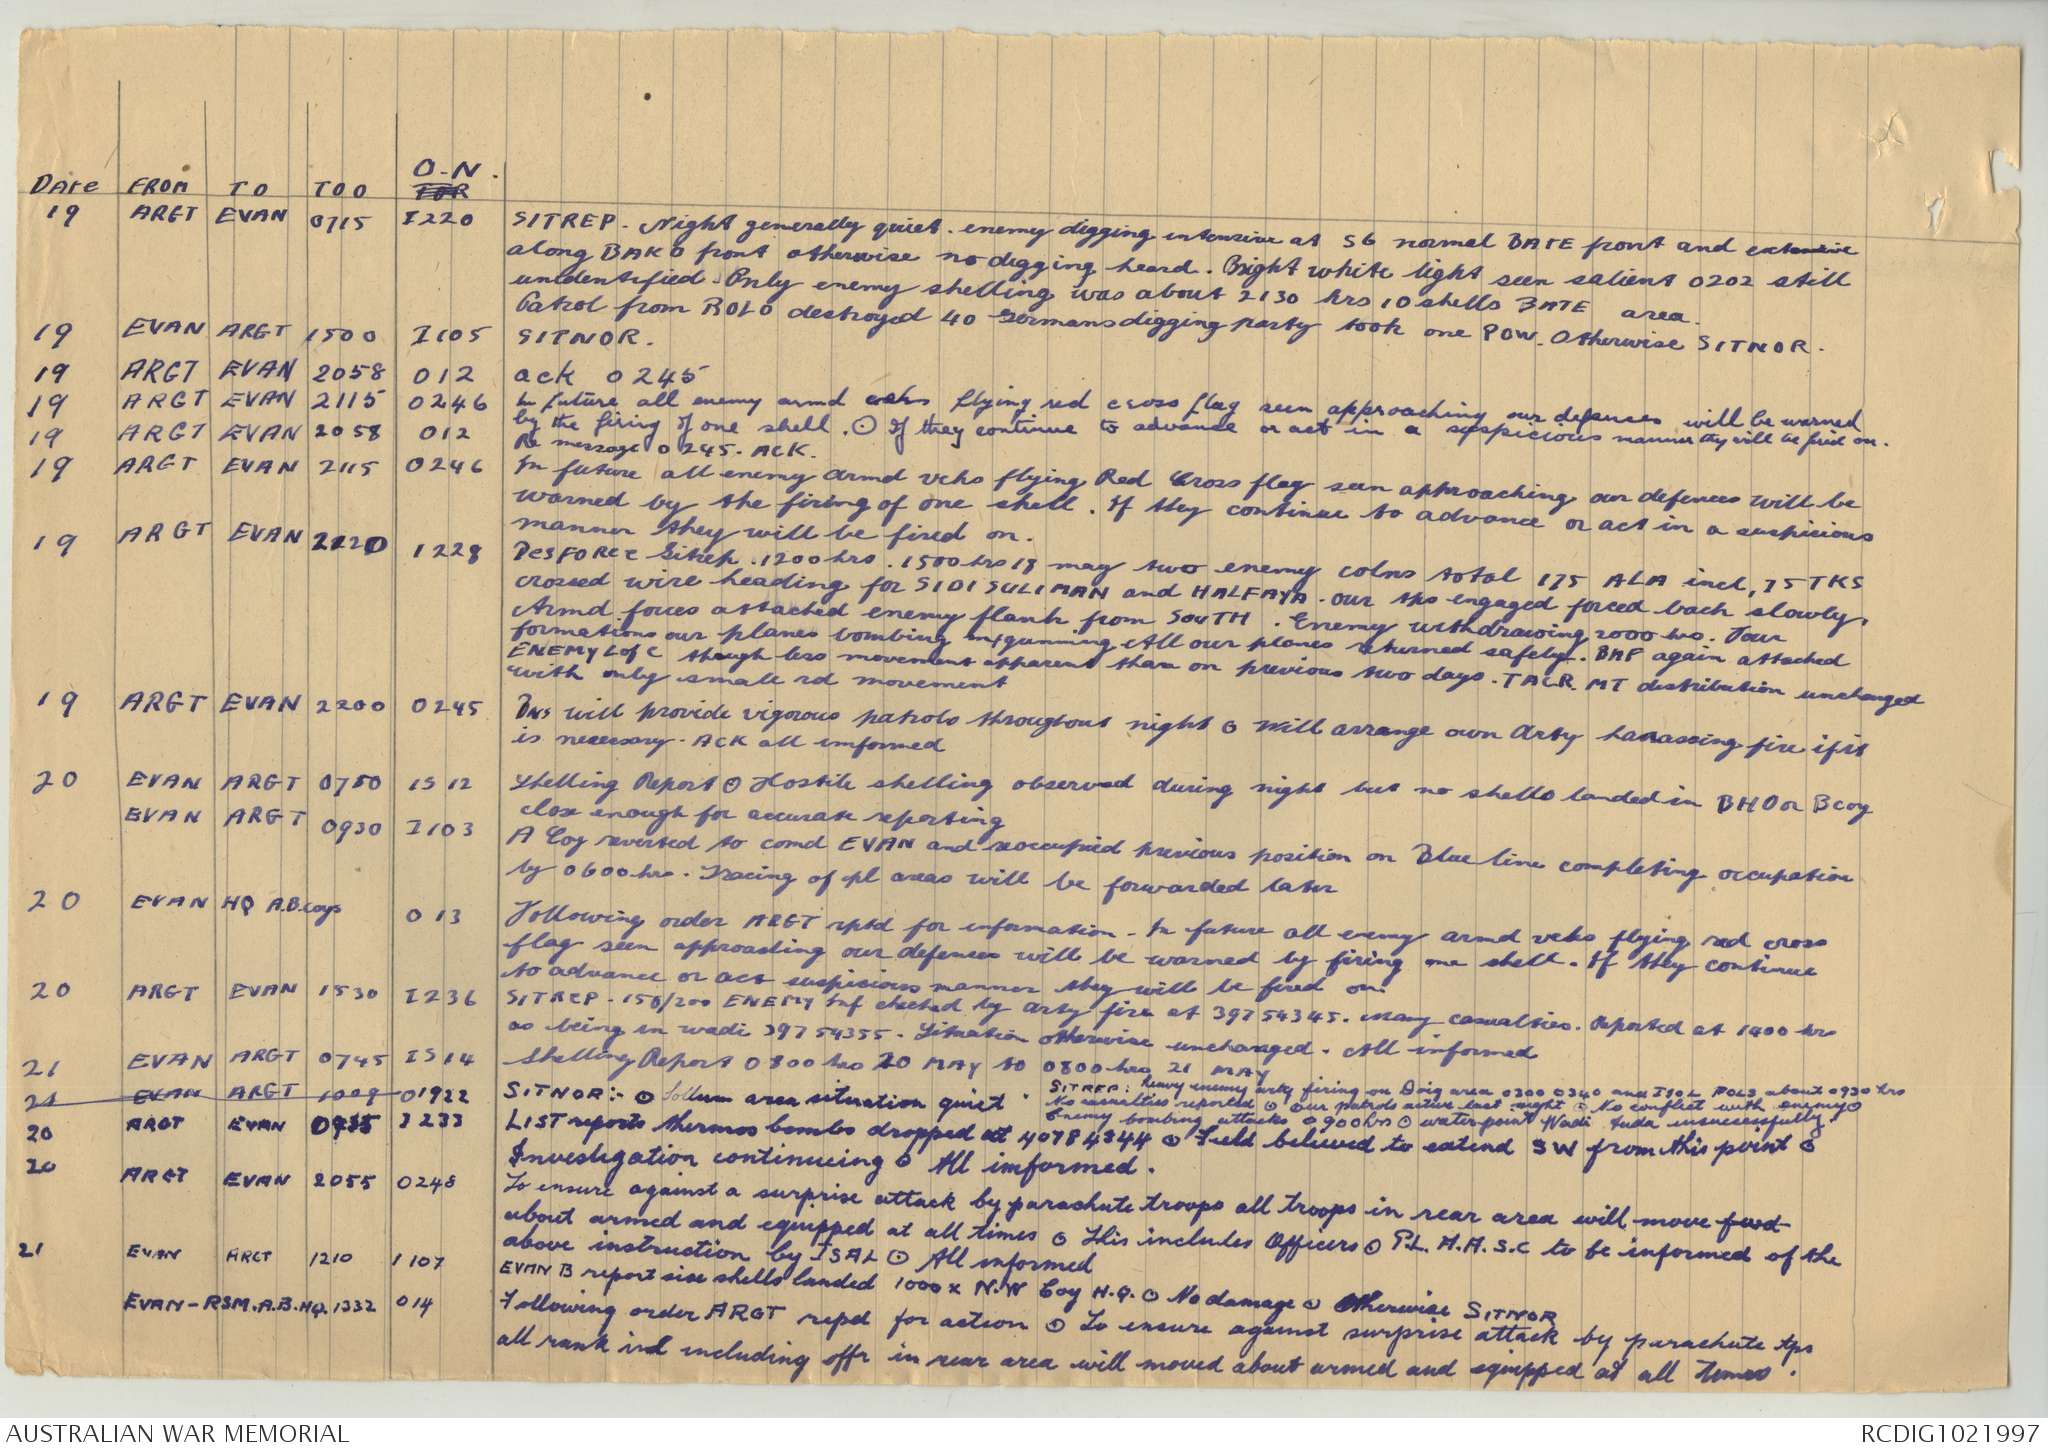 O-N.
DATE FROM TO TOO TOR
19 ARGT EVAN 0715 I220 SITREP - Night generally quiet. enemy digging intensive at S6 normal BATE front and extensive
along BAKO front otherwise no digging heard. Bright white light seen salient 0202 still
unidentified. Only enemy shelling was about 2130 hrs 10 shells BATE area.
Patrol from ROLO destroyed 40 Germans digging party took one POW. Otherwise SITNOR.
19 EVAN ARGT 1500 I105 SITNOR.
19 ARGT EVAN 2058 012 ack 0245
19 ARGT EVAN 2115 0246 In future all enemy armd vehs flying red cross flag seen approaching our defences will be warned
by the firing of one shell. ⊙ If they continue to advance or act in a suspicious manner they will be fired on.
19 ARGT EVAN 2058 012 Re message 0245. ACK.
19 ARGT EVAN 2115 0246 In future all enemy armd vehs flying Red Cross flag seen approaching our defences will be
warned by the firing of one shell. If they continue to advance or act in a suspicious
manner they will be fired on.
19 ARGT EVAN 2220 1228 DESFORCE Sitrep. 1200 hrs. 1500 hrs 18 may two enemy colns total 175 ALA incl, 75 TKS
crossed wire heading for SIDI SULIMAN and HALFAYA. our tks engaged forced back slowly,
Armd forces attached enemy flank from SOUTH. Enemy withdrawing 2000 hrs. Four
formations our planes bombing m/gunning All our planes returned safely. BAF again attached
ENEMY L of C though less movement apparent than on previous two days. TACR. MT distribution unchanged
with only small rd movement
19 ARGT EVAN 2200 0245 Bns will provide vigorous patrols throughout night ⊙ Will arrange own Arty harassing fire if it
is necessary. ACK all imformed
20 EVAN ARGT 0750 IS 12 Shelling Report ⊙ Hostile shelling observed during night but no shells landed in BHQ or B coy
close enough for accurate reporting
EVAN ARGT 0930 I103 A Coy reverted to comd EVAN and reoccupied previous position on Blue line completing occupation
by 0600 hrs. Tracing of pl areas will be forwarded later
20 EVAN HQ A.B. coys 013 Following order ARGT rptd for information - In future all enemy armd vehs flying red cross
flag seen approaching our defences will be warned by firing one shell. If they continue
to advance or act suspicious manner they will be fired on.
20 ARGT EVAN 1530 I236 SITREP - 150/200 ENEMY Inf checked by arty fire at 39754345. many casualties. Reported at 1400 hrs
as being in wadi 39754355. Situation otherwise unchanged. All informed
21 EVAN ARGT 0745 IS14 Shelling Report 0800 hrs 20 MAY to 0800 hrs 21 MAY
21 EVAN ARGT 1009 01922 SITNOR:- ⊙ Sollum area situation quiet. SITREP: heavy enemy arty firing on Doig area 0300 0340 and ISOL POLS about 0930 hrs
No casualties reported ⊙ Our patrols active last night ⊙ No conflict with enemy ⊙
Enemy bombing attacks 0900 hrs ⊙ water point Wadi Auda unsuccessfully.
20 ARGT EVAN 0935 I233 LIST reports thermos bombs dropped at 40784344 ⊙ Field believed to extend SW from this point ⊙
Investigation continuing ⊙ All imformed.
20 ARGT EVAN 2055 0248 To ensure against a surprise attack by parachute troops all troops in rear area will move fwd
about armed and equipped at all times ⊙ This includes Officers ⊙ P.L. A.A.S.C to be informed of the
above instruction by ISAL ⊙ All informed
21 EVAN ARGT 1210 I107 EVAN B report six shells landed 1000x N.W Coy H.Q. ⊙ No damage ⊙ Otherwise SITNOR
EVAN - RSM. A.B. HQ. 1332 014 Following order ARGT repd for action ⊙ To ensure against surprise attack by parachute tps
all rank incl including offr in rear area will moved about armed and equipped at all times.
AUSTRALIAN WAR MEMORIAL RCDIG1021997